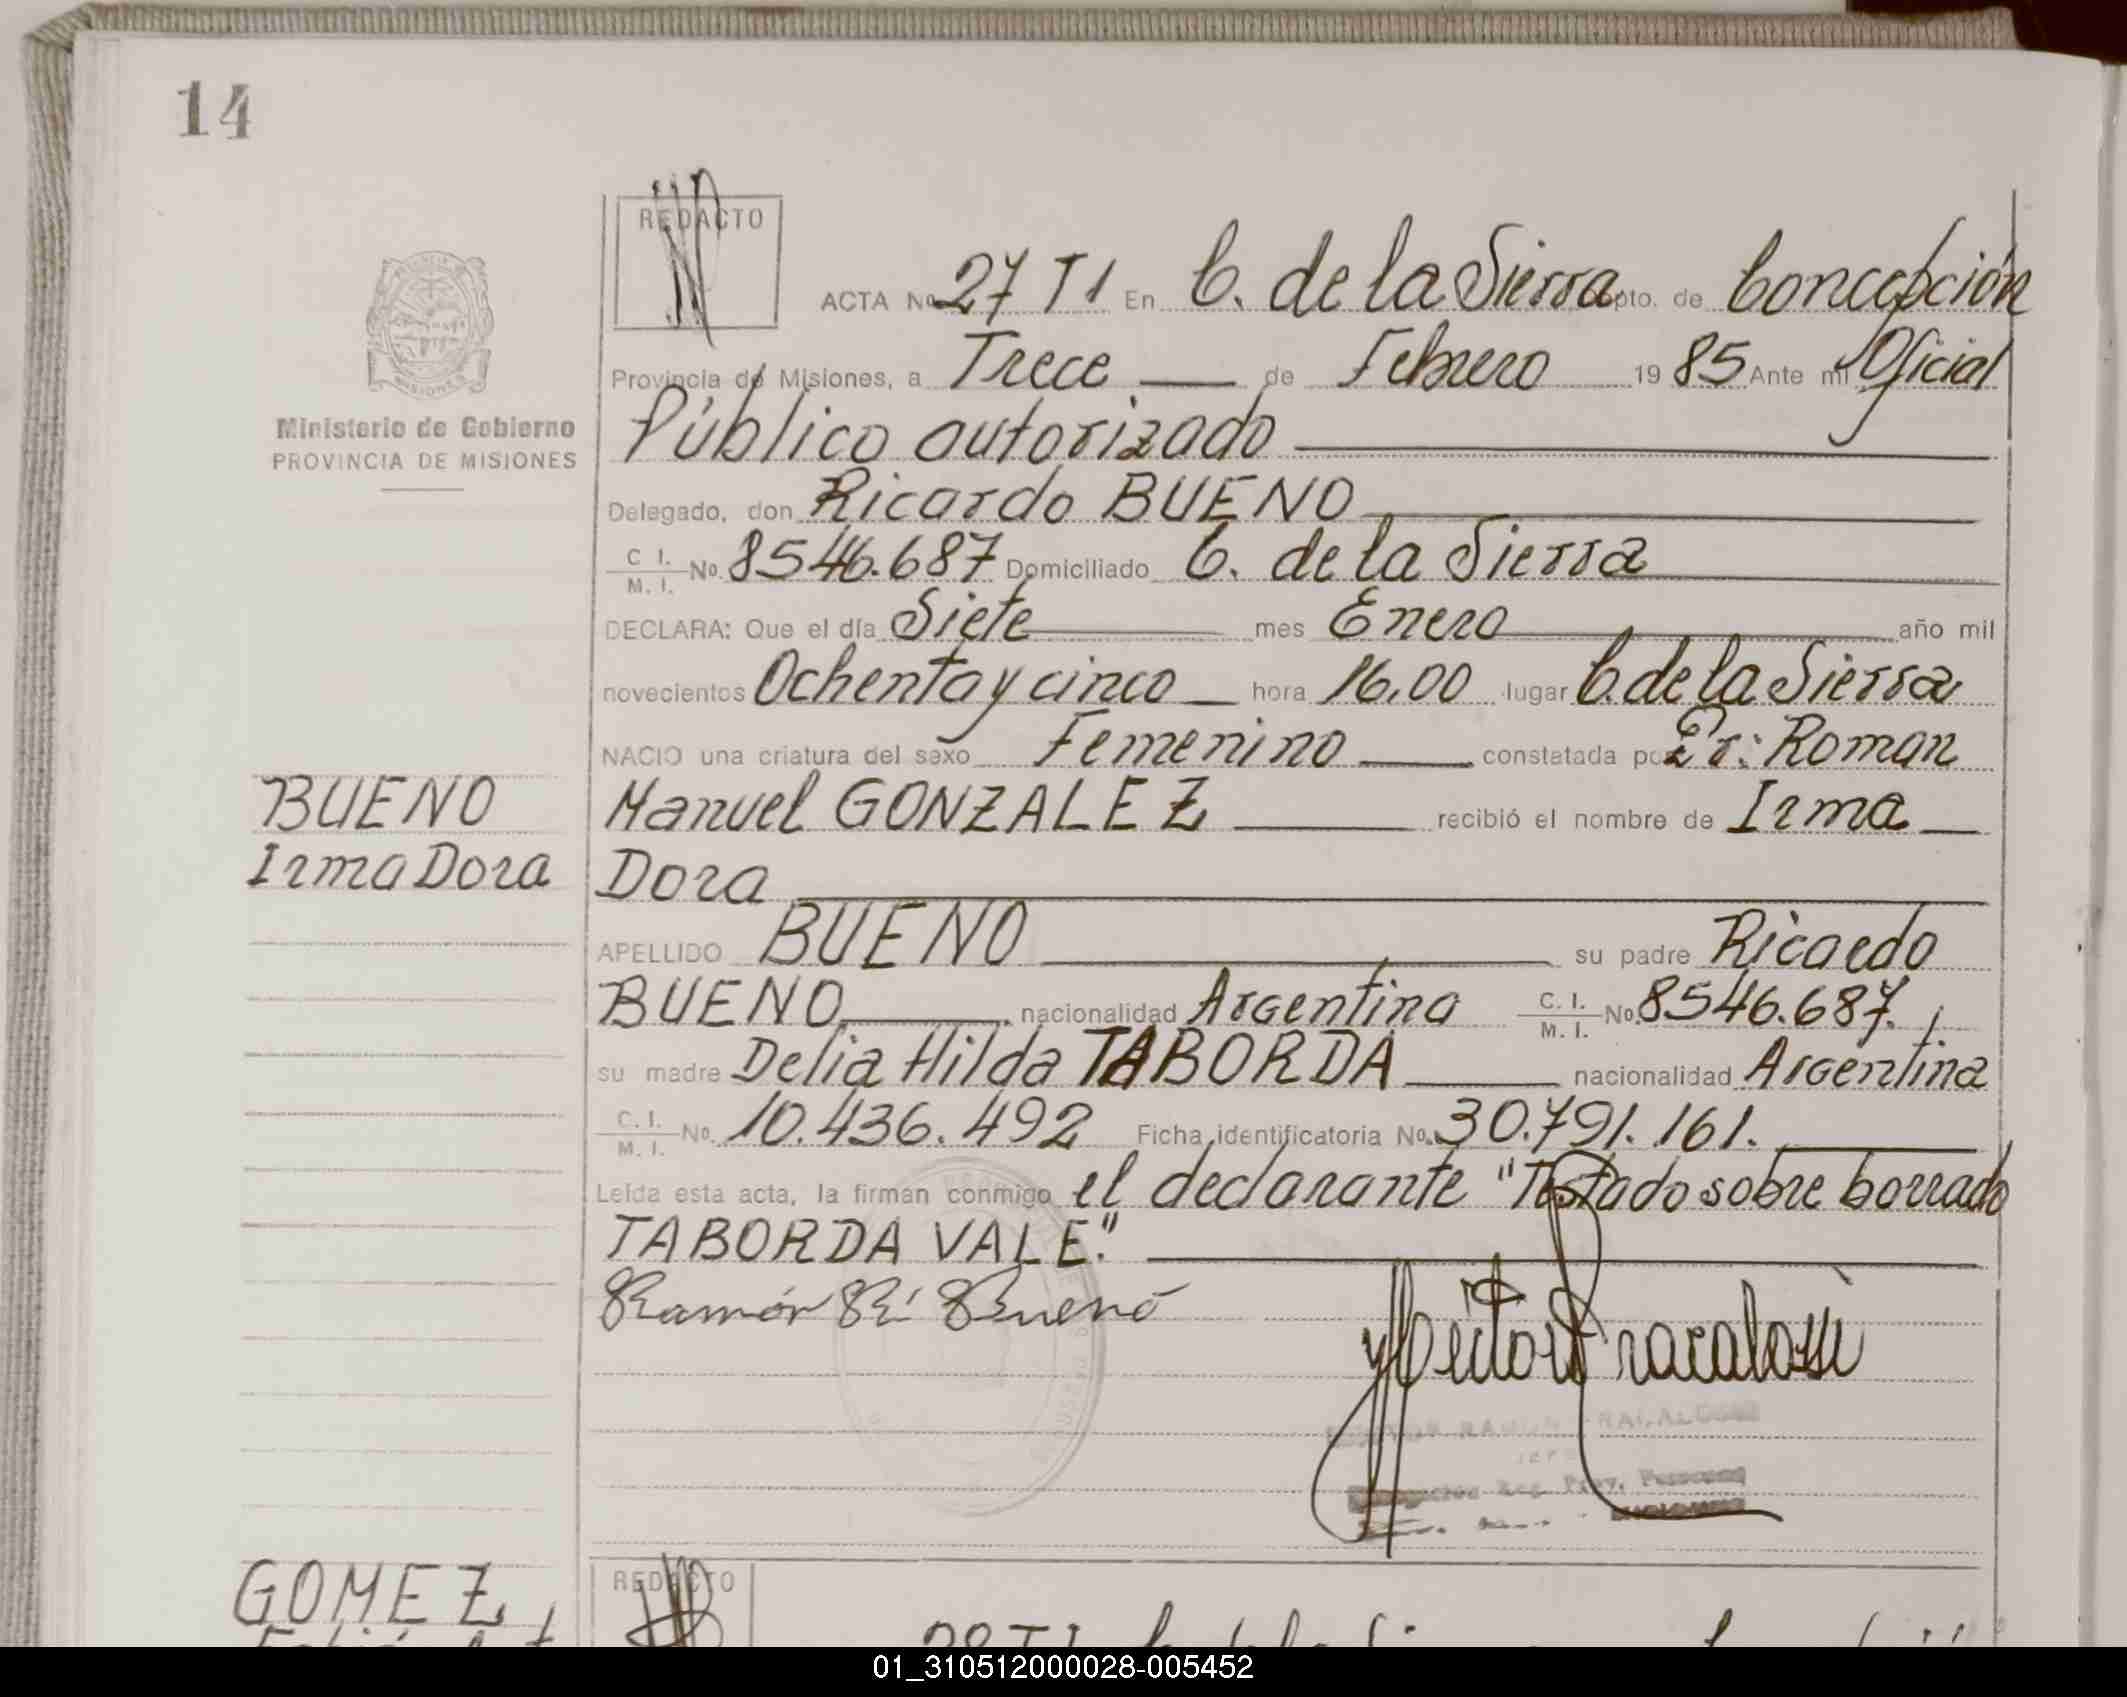 14
REDACTO
ACTA No 27 T1 En C. de la Sierra Dpto. de Concepción
Provincia de Misiones, a Trece de Febrero 1985 Ante mi Oficial
Público autorizado
Delegado, don Ricardo BUENO
C. I. M. I. No. 8546.687 Domiciliado C. de la Sierra
DECLARA: Que el día Siete mes Enero año mil
novecientos Ochenta y cinco hora 16,00 lugar C. de la Sierra
NACIO una criatura del sexo Femenino constatada por Roman
Manuel GONZALEZ recibió el nombre de Irma
Dora
APELLIDO BUENO su padre Ricardo
BUENO nacionalidad Argentina C. I. M. I. No. 8546.687.
su madre Delia Hilda TABORDA nacionalidad Argentina
C. I. M. I. No. 10.436.492 Ficha identificatoria No. 30.791.161.
Leída esta acta, la firman conmigo el declarante "Testado sobre borrado
TABORDA VALE."
Ramón Bueno
Ministerio de Gobierno
PROVINCIA DE MISIONES
BUENO
Irma Dora
GOMEZ
REDACTO
01_310512000028-005452